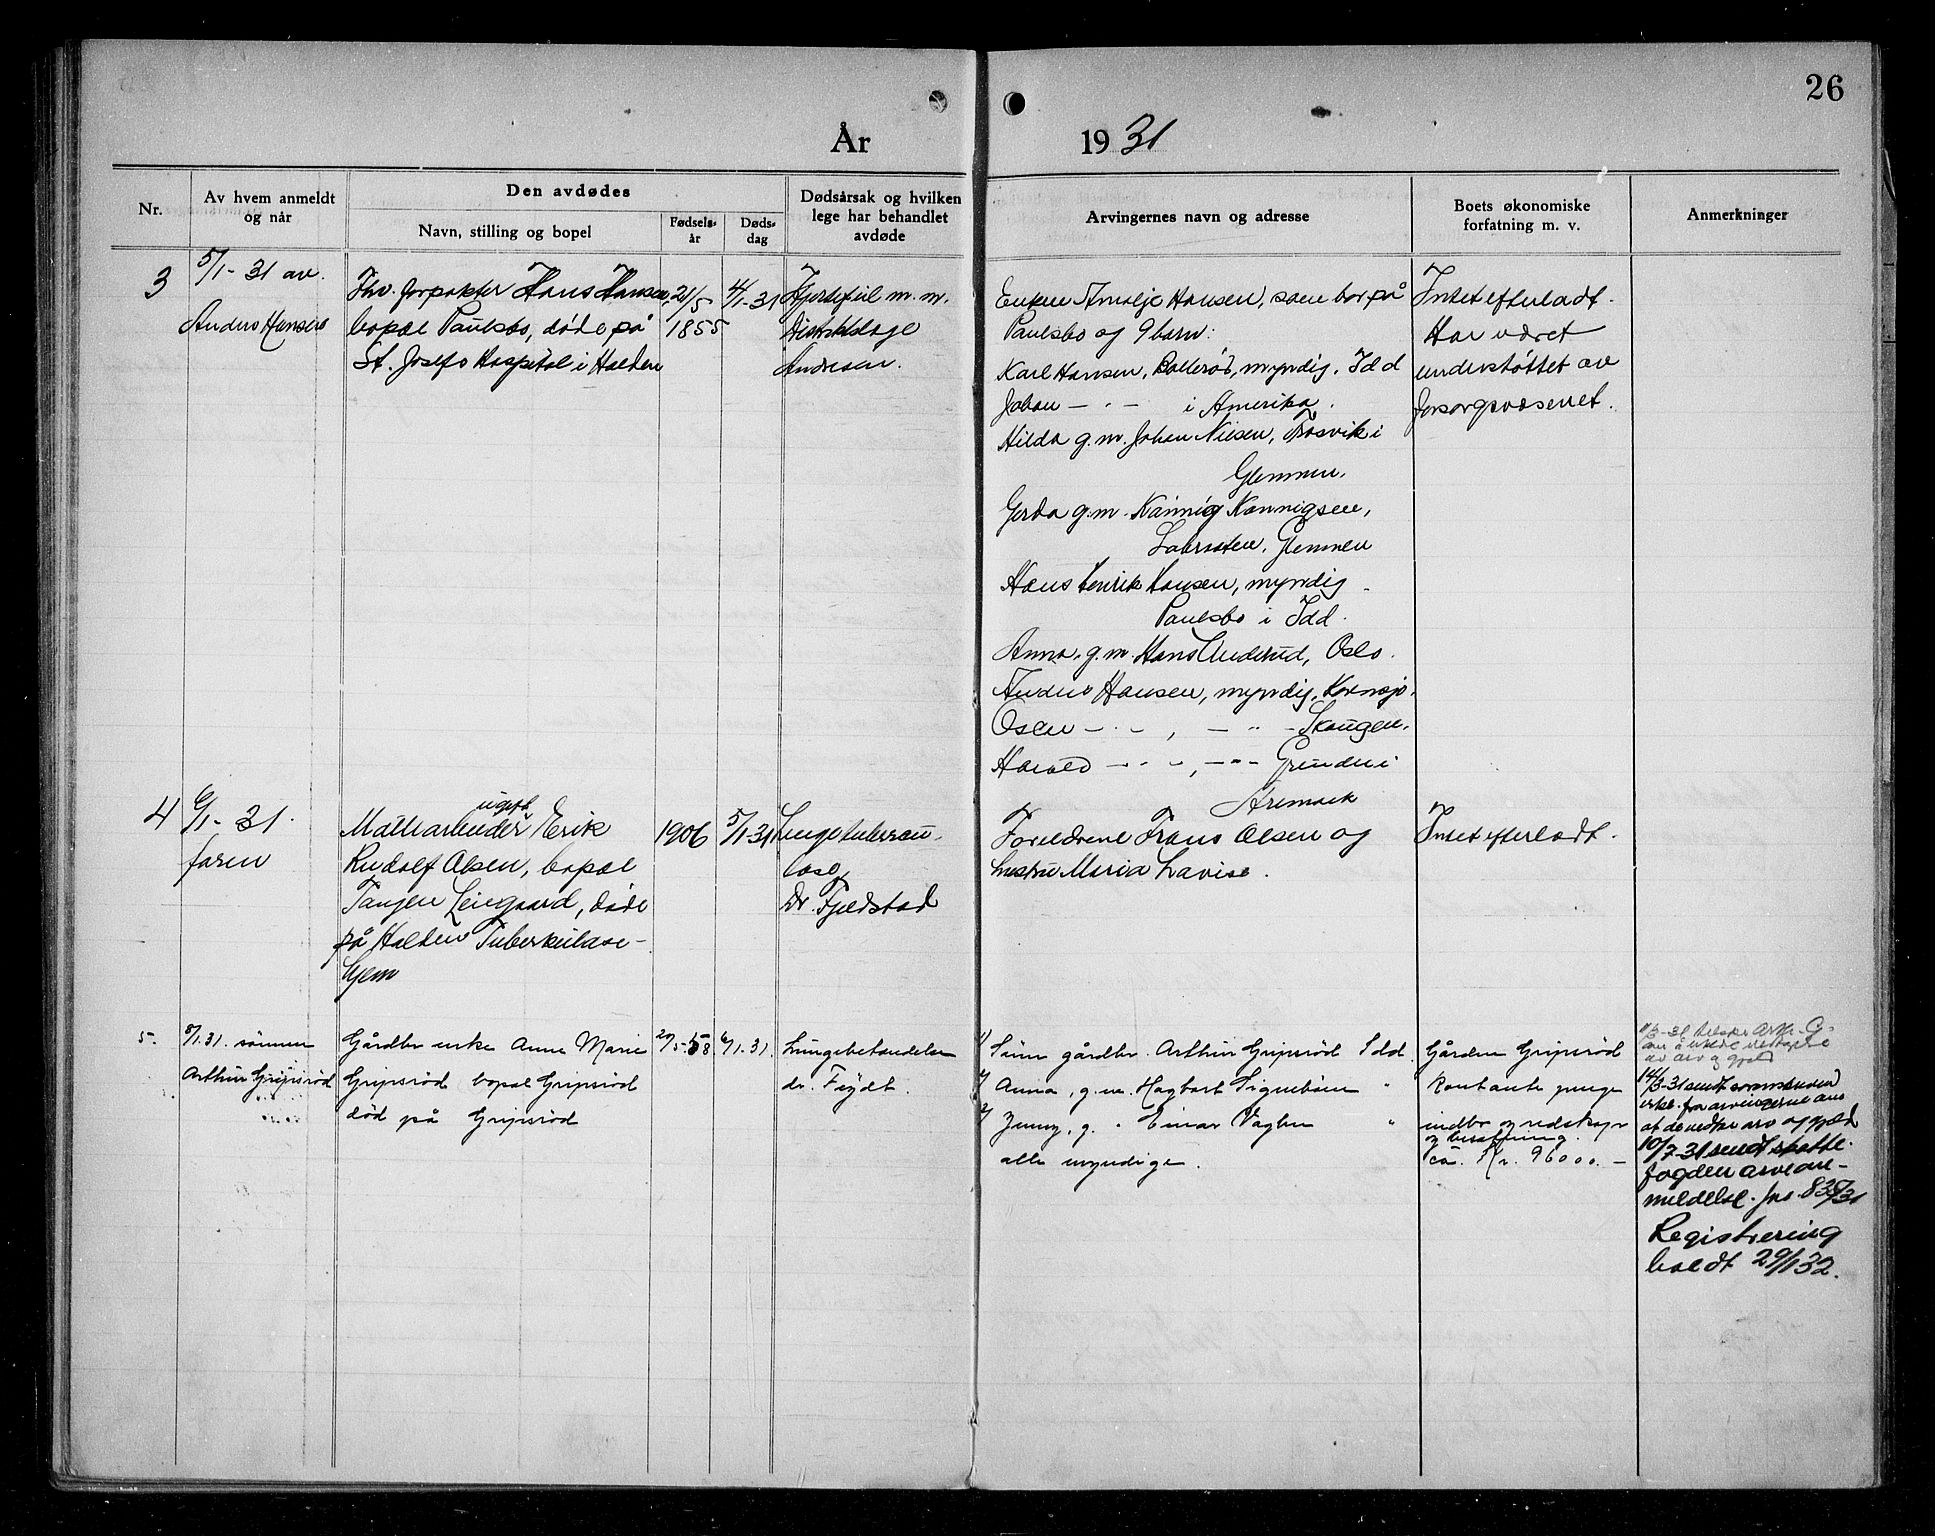 26
År 1931
Nr.
Av hvem anmeldt
og når
Den avdødes
Navn, stilling og bopel
Fødsels-
år
Døds-
dag
Dødsårsak og hvilken
lege har behandlet
avdøde
Arvingernes navn og adresse
Boets økonomiske
forfatning m. v.
Anmerkninger
3
5/1-31 av
Anders Hansen
Fhv. forpakter Hans Hansen,
bopæl Paulsbo, døde på
St. Josefs Hospital i Halden
21/5
1855
4/1-31
Hjertefeil m. m.
Distriktslæge
Andresen.
Enken Amalje Hansen, som bor på
Paulsbo og 9 barn:
Karl Hansen, Bollerød, myndig, Idd
Johan — " — i Amerika.
Hilda g.m. Johan Nilsen, Trosvik i
Glemmen.
Gerda g.m. Kannig Kannigsen,
Glemmen
Hans Henrik Hansen, myndig
Paulsbo i Idd.
Anna, g.m. Hans, Oslo.
Anders Hansen, myndig, Kornsjø.
Oscar — " — , — " — Skaugen.
Harald — " — , — " — Grinder i
Aremark
Intet efterladt.
Har været
understøttet av
forsorgsvæsenet.
4
6/1-31.
faren
ugift
Mattearbeider Erik
Rudolf Olsen, bopæl
Tangen Leiegaard, døde
på Halden Tuberkulose-
hjem
1906
5/1-31
Lungetuberku-
lose
Dr. Fjeldstad
Foreldrene Frans Olsen og
hustru Maria Lavise.
Intet efterladt.
5.
8/1.31. sønnen
Arthur Gripsrød
Gårdbr enke Anne Marie
Gripsrød bopæl Gripsrød
død på Gripsrød
20/5-58
6/1.31.
Lungebetændelse
dr. Feydt.
1/ Sønn gårdbr. Arthur Gripsrød Idd.
2/ Anna, g.m. Hagbart Signebøen "
3/ Jenny, g. " Einar Vagler "
alle myndige.
Gården Gripsrød
kontante penge
indbo og redskap
og besætning.
ca. Kr. 96000.—
av arv og gjeld
14/3-31 sendt
erkl. fra arvingerne om
at de vedtar arv og gjeld
10/7-31 sendt skatte-
fogden arvean-
meldelse. Jno. 835/31
Registrering
holdt 29/1 32.